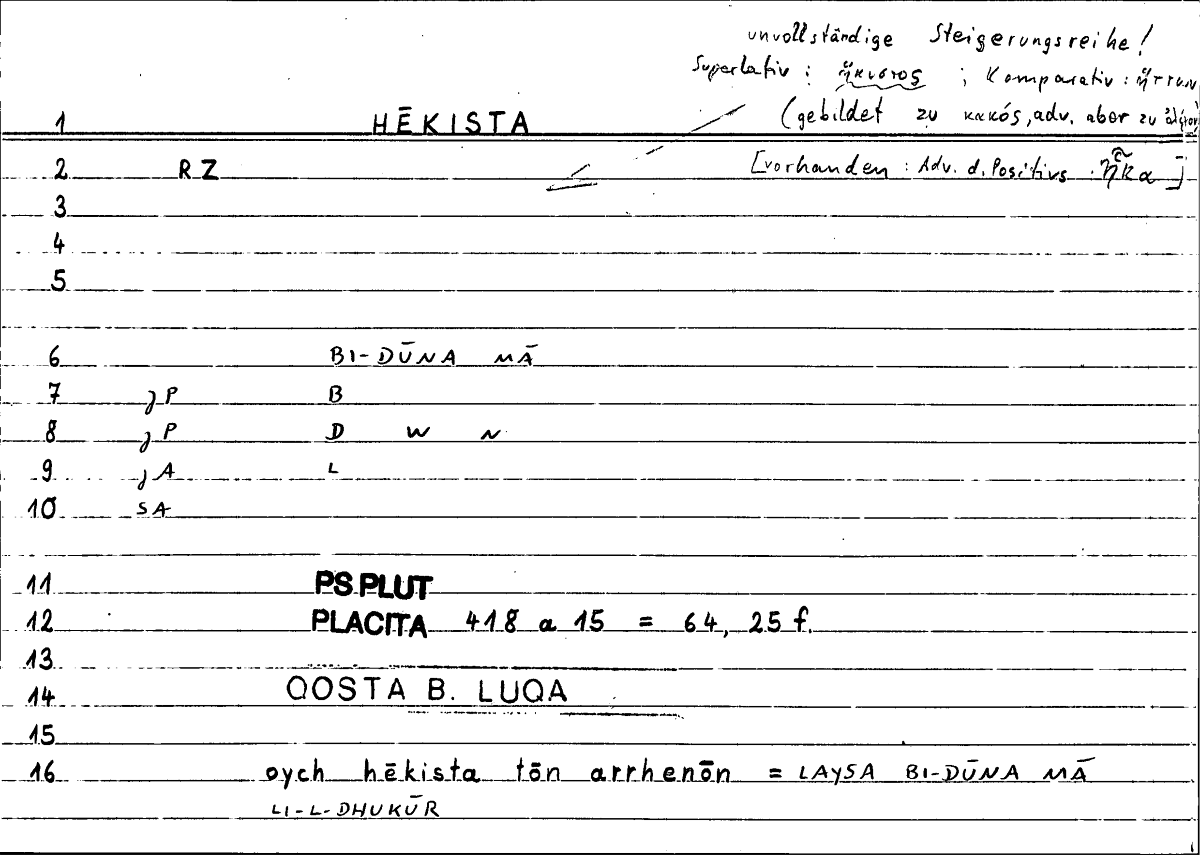 unvollständige Steigerungsreihe!
Superlativ: ἥκιστος ; Komparativ: ἥττων
1 HĒKISTA (gebildet zu κακός, adv. aber zu
2 RZ [vorhanden: Adv. d. Positivs: ἦκα]
3
4
5
6 BI-DŪNA MĀ
7 ȷP B
8 ȷP D W N
9 ȷA L
10 SA
11 PS.PLUT
12 PLACITA 418 a 15 = 64, 25 f.
13
14 QOSTA B. LUQA
15
16 oych hēkista tōn arrhenōn = LAYSA BI-DŪNA MĀ
LI-L-DHUKŪR